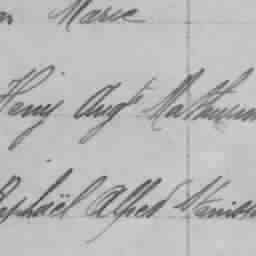 Marie
Henry Augte Mathurin
Raphaël Alfred Stanislas